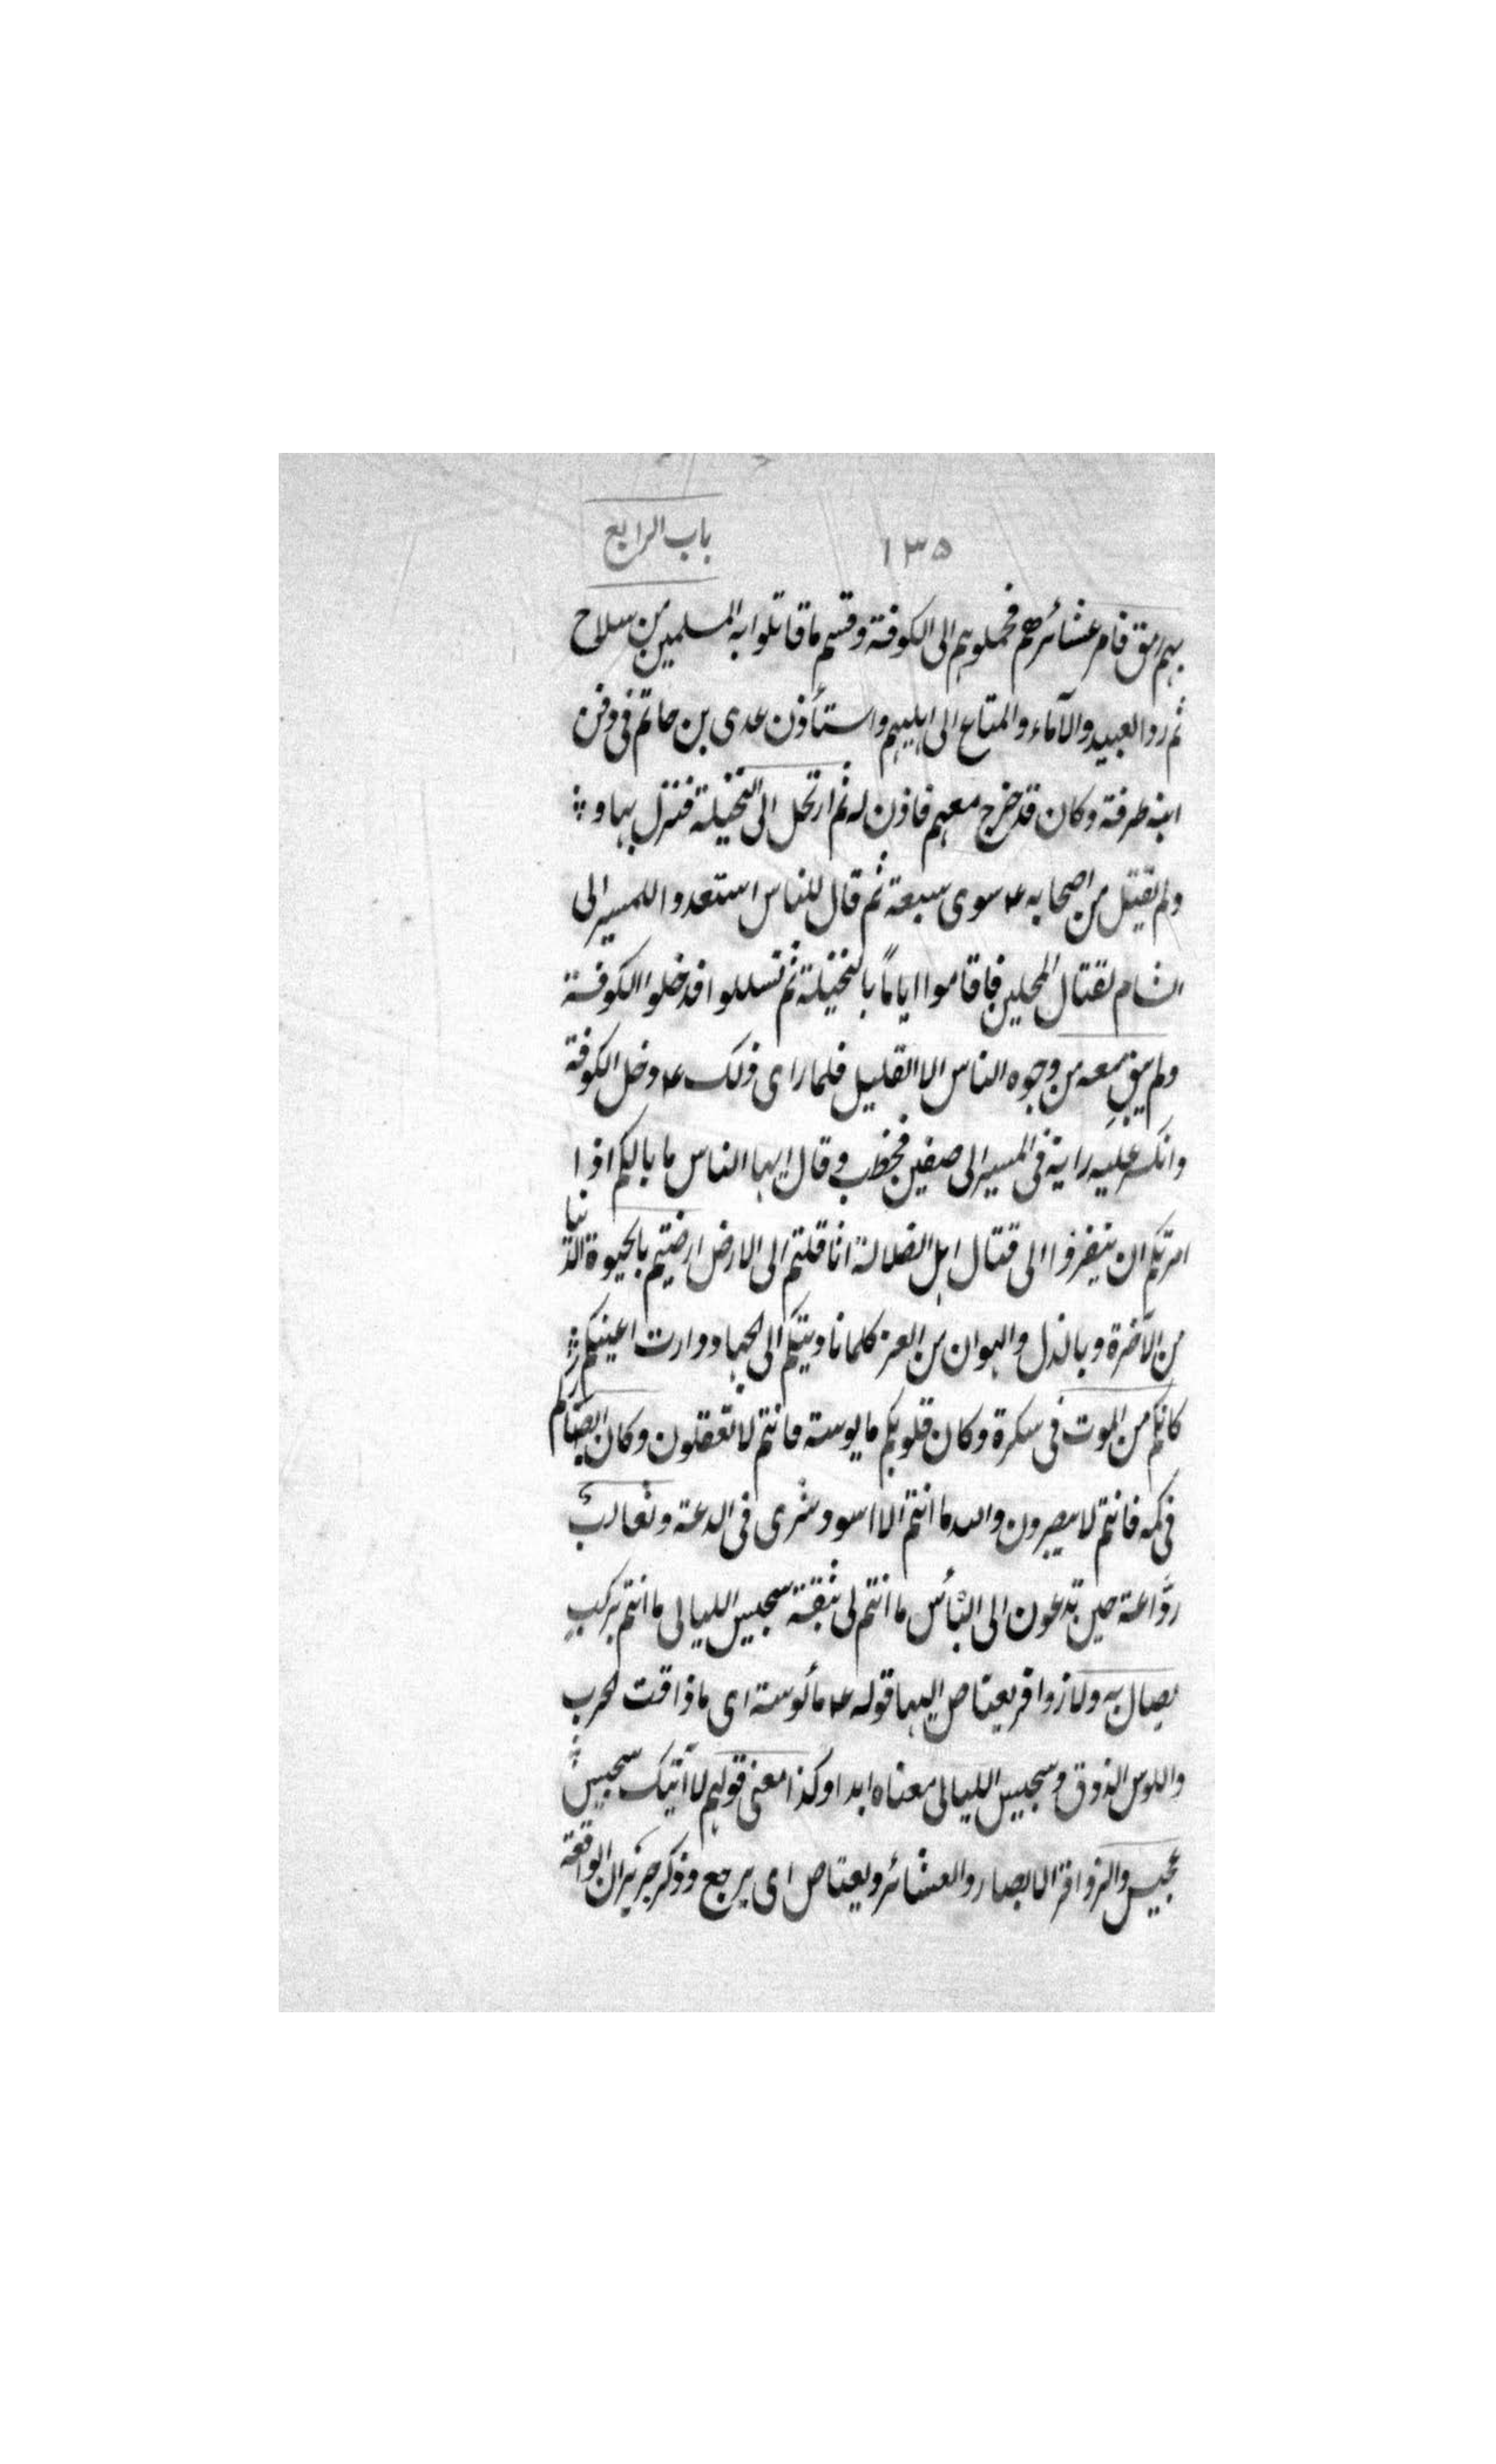 ١٣٥ باب الرابع
بهم رمق فامر عشائرهم فحملوهم الى الكوفة وقسم ما قاتلوا به المسلمين من سلاح
ثم ردوا العبيد والآماء والمتاع الى اهليهم واستأذن عدى بن حاتم فى دفن
ابنه طرفة وكان قد خرج معهم فاذن له ثم ارتحل الى النخيلة فنزل بها و
ولم يقتل من اصحابه ع سوى سبعة ثم قال للناس استعدوا للمسير الى
الشام لقتال المحلين فاقاموا اياماً بالنخيلة ثم تسللوا فدخلوا الكوفة
ولم يبق معه من وجوه الناس الا القليل فلما راى ذلك ع دخل الكوفة
وانكسر عليه رايه فى المسير الى صفين فخطب و قال ايها الناس ما بالكم اذا
امرتكم ان تنفروا الى قتال اهل الضلالة اثاقلتم الى الارض ارضيتم بالحيوة الدنيا
من الآخرة وبالذل والهوان من العز كلما ناديتكم الى الجهاد دارت اعينكم
كانكم من الموت فى سكرة وكان قلوبكم مايوسة فانتم لا تعقلون وكان ابصاركم
فى كمه فانتم لا تبصرون والله ما انتم الا اسود شرى فى الدعة وثعالب
روّاغة حين تدعون الى البأس ما انتم لى بثقة سجيس الليالى ما انتم بركب
يصال به ولا زوافر يعتاص اليها قوله ع مألوسة اى ما ذاقت الحرب
واللوس الذوق وسجيس الليالى معناه ابدا وكذا معنى قولهم لا آتيك سجيس
عجيس والزوافر الابصار والعشائر ويعتاص اى يرجع وذكر جرير ان الواقعة